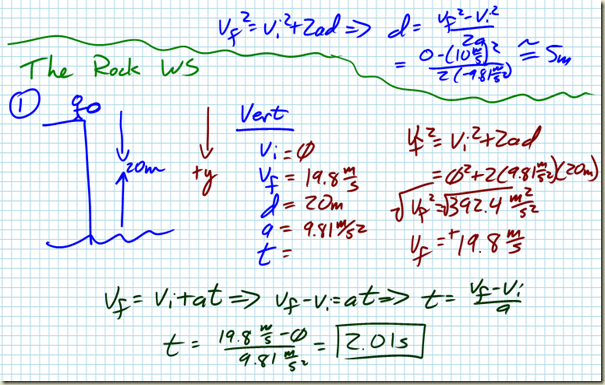 Vf² = Vi² + 2ad => d = (Vf² - Vi²)/2a
= (0 - (10 m/s)²)/(2(-9.81 m/s²)) ≅ 5m
The Rock WS
①
20m
+y
Vert
Vi = ∅
Vf = 19.8 m/s
d = 20m
a = 9.81 m/s²
t =
Vf² = Vi² + 2ad
= ∅² + 2(9.81 m/s²)(20m)
√Vf² = √392.4 m²/s²
Vf = +19.8 m/s
Vf = Vi + at => Vf - Vi = at => t = (Vf - Vi)/a
t = (19.8 m/s - ∅)/(9.81 m/s²) = 2.01s